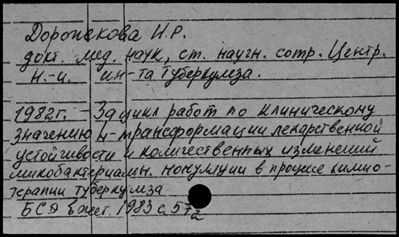 Дорожкова И.Р.
докт. мед. наук, ст. научн. сотр. Центр.
н.-и. ин-та туберкулеза.
1982г. – За цикл работ по клиническому
значению и трансформации лекарственной
устойчивости и количественных изменений
микобактериальн. популяции в процессе химио-
терапии туберкулеза
БСЭ Ежег. 1983 с. 572